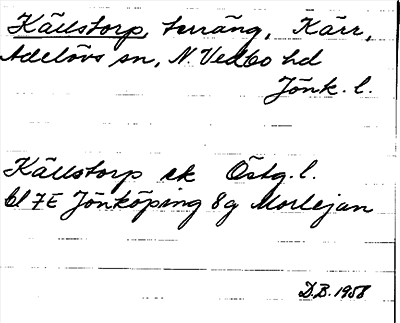 Källstorp, terräng, Kärr,
Adelövs sn, N. Vedbo hd
Jönk. l.
Källstorp ek Östg. l.
bl 7E Jönköping 8g Morlejan
D.B. 1958